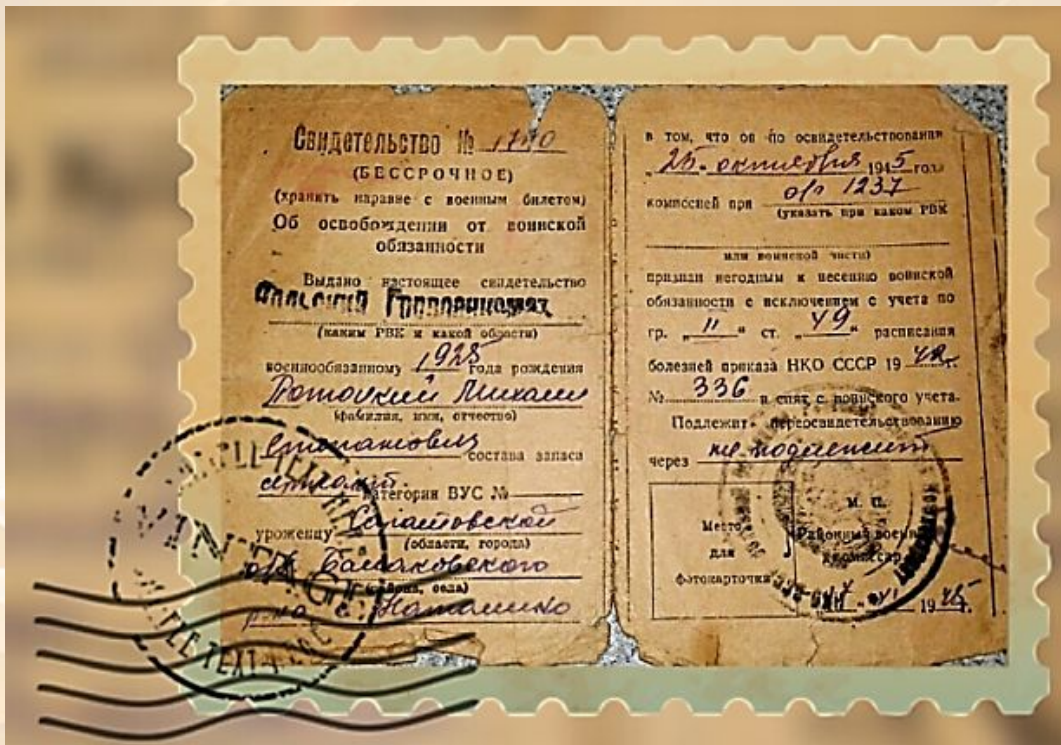 Свидетельство №
(БЕССРОЧНОЕ)
(хранить наравне с военным билетом)
Об освобождении от воинской
обязанности
Выдано настоящее свидетельство
(каким РВК и какой области)
военнообязанному 1925 года рождения
Потоцкий Михаил
(фамилия, имя, отчество)
Степанович состава запаса
категории ВУС №
уроженцу Саратовской
(области, города)
обл Балаковского
(района, села)
р-на с. Наталино
в том, что он по освидетельствовании
„25" октября 1945 года
комиссией при 1237
(указать при каком РВК
или воинской части)
признан негодным к несению воинской
обязанности с исключением с учета по
гр. „11" ст. „49" расписания
болезней приказа НКО СССР 1942г.
№ 336 и снят с воинского учета.
Подлежит переосвидетельствованию
через не подлежит
Место
для
фотокарточки
М. П.
Районный военный
комиссар
1945г.